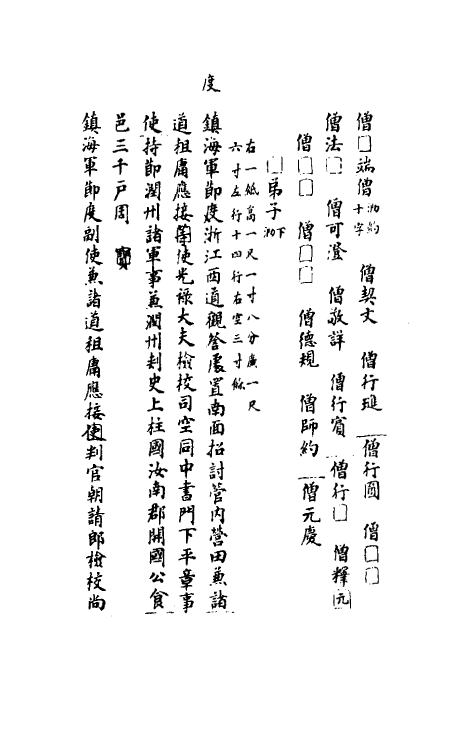 僧□端僧泐約十字　僧契文　僧行璡　僧行圓　僧□□
僧法□　僧可澄　僧敬詳　僧行賓　僧行□　僧釋元
僧□□　僧□□　僧德規　僧師約　僧元慶
□弟子下泐
右一紙高一尺一寸八分廣一尺
六寸左行十四行右空三寸餘
度
鎮海軍節度浙江西道觀詧處置南面招討管內營田兼諸
道租庸應接等使光祿大夫檢校司空同中書門下平章事
使持節潤州諸軍事兼潤州刺史上柱國汝南郡開國公食
邑三千戶周寶
鎮海軍節度副使兼諸道租庸應接使判官朝請郎檢校尚